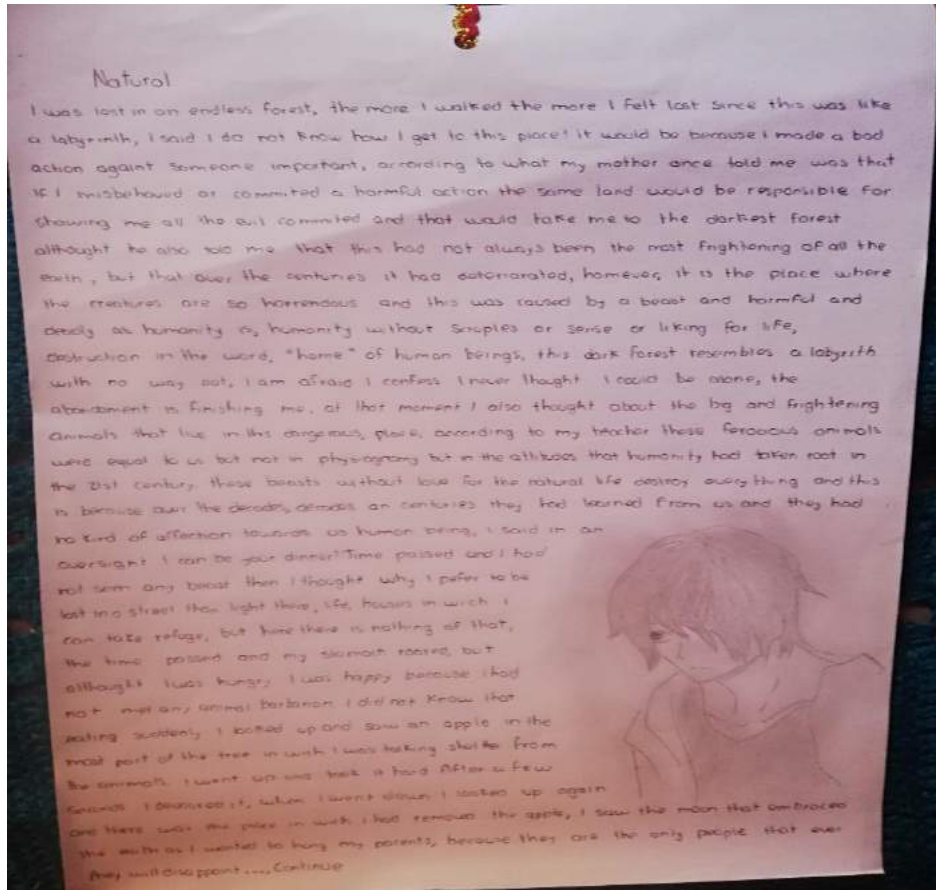 Natural
I was lost in an endless forest, the more I walked the more I felt lost since this was like
a labyrinth, I said I do not know how I get to this place! it would be because I made a bad
action againt someone important, according to what my mother once told me was that
if I misbehaved or commited a harmful action the same land would be responsible for
showing me all the evil commited and that would take me to the darkest forest
althought he also told me that this had not always been the most frightening of all the
earth, but that over the centuries it had deteriorated, however, it is the place where
the creatures are so horrendous and this was caused by a beast and harmful and
deadly as humanity is, humanity without scruples or sense or liking for life,
destruction in the word, "home" of human beings, this dark forest resembles a labyrith
with no way out, I am afraid I confess I never thought I could be alone, the
abandoment is finishing me, at that moment I also thought about the big and frightening
animals that live in this dangerous, place, according to my teacher these ferocious animals
were equal to us but not in physiognomy but in the attitudes that humanity had taken root in
the 21st century, these beasts without love for the natural life destroy every thing and this
is because over the decades, an centuries they had learned from us and they had
no kind of affection towards us human being, I said in an
oversight I can be your dinner! Time passed and I had
not seen any beast then I thought why I prefer to be
lost in a street than light there, life, houses in wich I
can take refuge, but here there is nothing of that,
the time passed and my roared, but
althought I was hungry I was happy because I had
not met any animal barbarian I did not know that
eating suddenly I looked up and saw an apple in the
most part of the tree in wich I was taking shelter from
the animals I went up and took it hard After a few
seconds I devoured it, when I went down I looked up again
and there was the place in wich I had removed the apple, I saw the moon that embraced
the earth as I wanted to hung my parents, because they are the only people that ever
they will disappoint .... Continue